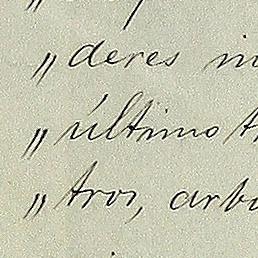 „ deres in
„ último tr
„ tros, arbo